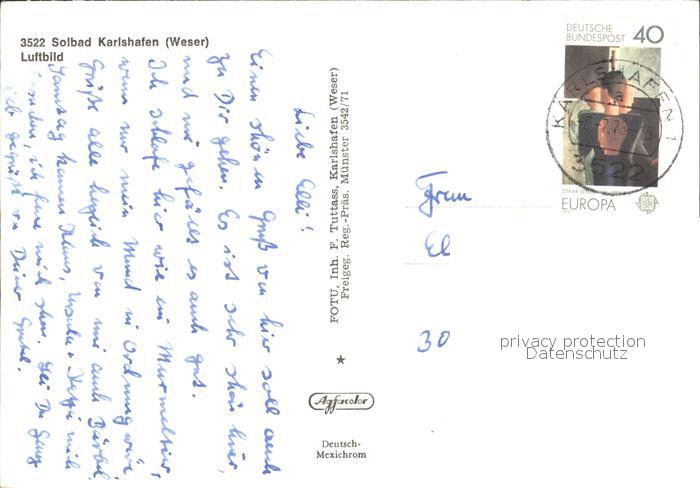 3522 Solbad Karlshafen (Weser)
Luftbild
Liebe Elli!
Einen schönen Gruß von hier soll auch
zu Dir gehen. Es ist sehr schön hier,
und mir gefällt es auch gut.
Ich schlafe hier wie ein Murmeltier,
wenn nur mein Mund in Ordnung wäre.
Grüße alle herzlich von mir auch Bärbel.
Samstag kamen Klaus, Ursula + mich
ich freue mich schon. Sei Du ganz
gegrüßt von Deiner
FOTU, Inh. F. Tuttass, Karlshafen (Weser)
Freigeg. Reg.-Präs. Münster 3542/71
Agfacolor
Deutsch-
Mexichrom
DEUTSCHE
BUNDESPOST 40
KARLSHAFEN 1
a
3522
EUROPA
Frau
El
30
privacy protection
Datenschutz